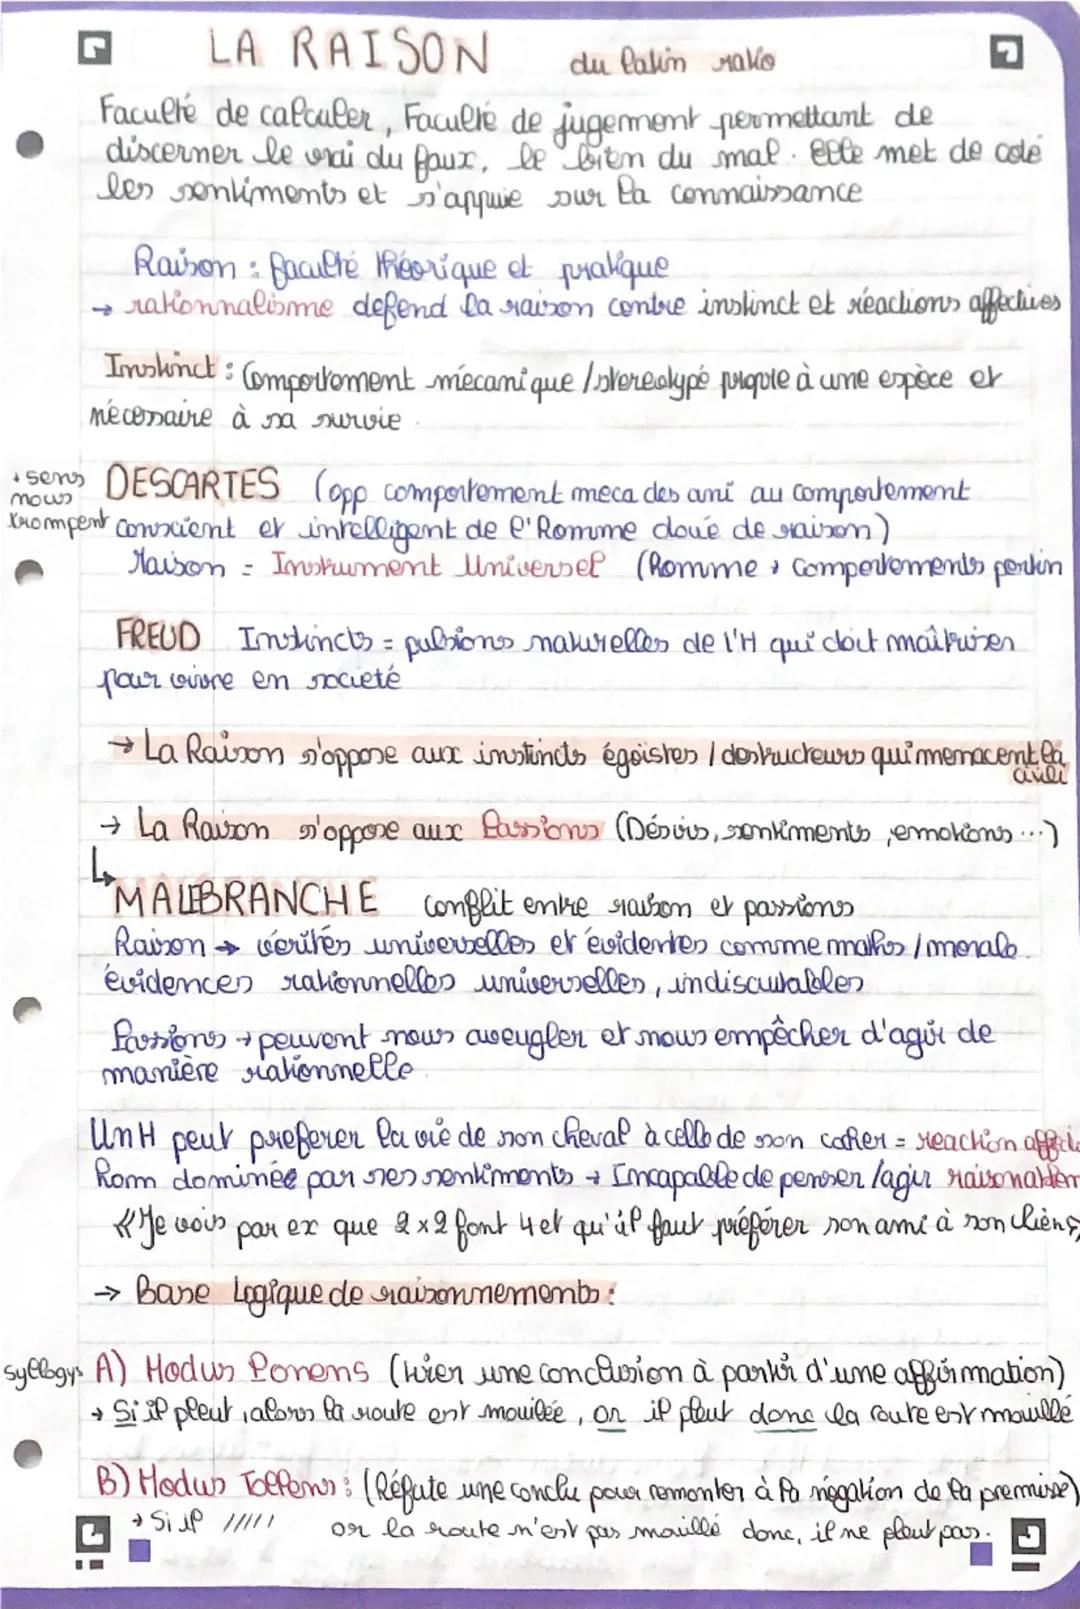 LA RAISON du latin ratio
Faculté de calculer, Faculté de jugement permettant de
discerner le vrai du faux, le bien du mal. Elle met de coté
les sentiments et s'appuie sur la connaissance
Raison : faculté théorique et pratique
→ rationnalisme defend la raison contre instinct et réactions affectives
Instinct : Comportement mécanique / stereotypé propre à une espèce et
nécessaire à sa survie.
+ sens
nous
trompent
DESCARTES (opp comportement meca des ani au comportement
conscient et intelligent de l'Homme doué de raison)
Raison = Instrument Universel (Homme → comportements pertin
FREUD Instincts = pulsions naturelles de l'H qui doit maîtriser
pour vivre en societé
→ La Raison s'oppose aux instincts égoistes / destructeurs qui menacent la
civili
→ La Raison s'oppose aux Passions (Désirs, sentiments, emotions ...)
↳ MALEBRANCHE conflit entre raison et passions
Raison → vérités universelles et évidentes comme maths / morale.
évidences rationnelles universelles, indiscutables
Passions → peuvent nous aveugler et nous empêcher d'agir de
manière rationnelle.
Un H peut preferer la vie de son cheval à celle de son cocher = reaction affecti
Hom dominée par ses sentiments → Incapable de penser / agir raisonablem
"Je vois par ex que 2 x 2 font 4 et qu'il faut préférer son ami à son chien"
→ Base Logique de raisonnements :
syllogys A) Modus Ponens (tirer une conclusion à partir d'une affirmation)
→ Si il pleut, alors la route est mouillée, or il pleut donc la route est mouillé
B) Modus Tollens : (Réfute une conclu pour remonter à la négation de la premisse)
→ Si il ///// or la route n'est pas mouillé donc, il ne pleut pas.